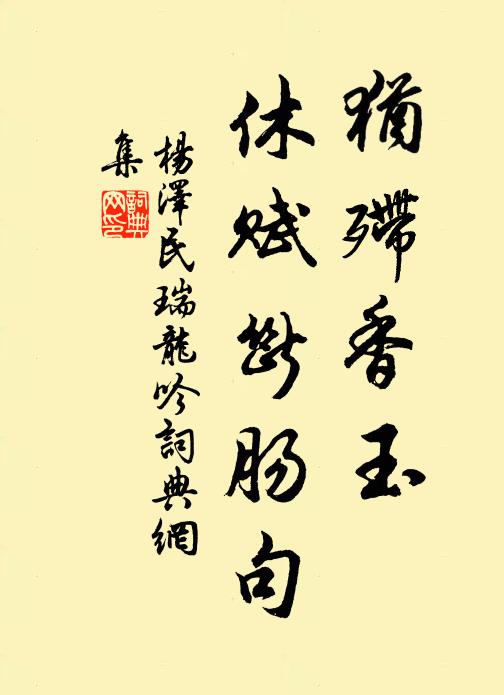 猶殢香玉
休賦斷腸句
楊澤民瑞龍吟詞典網
集
詞典網印